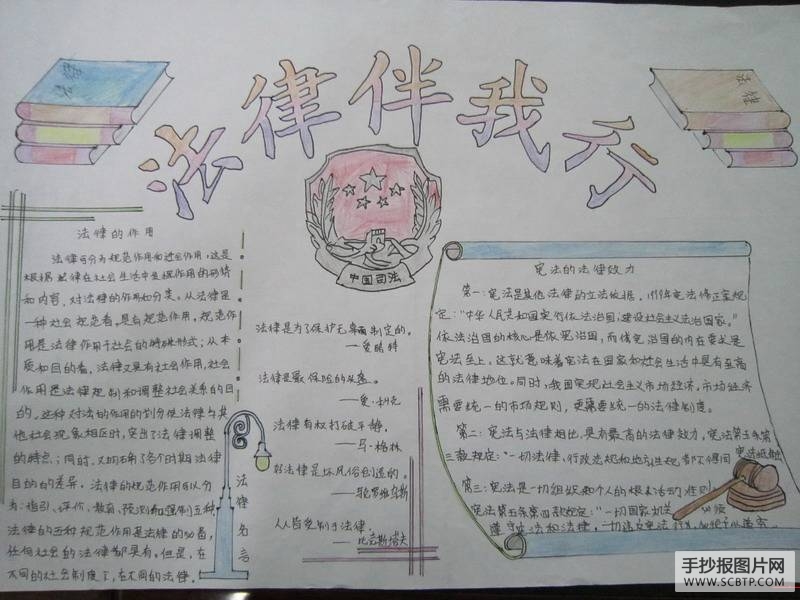 法律伴我行
法律
中国司法
法律的作用
法律可分为规范作用和社会作用,这是
根据法律在社会生活中发挥作用的形式
和内容,对法律的作用的分类。从法律是
一种社会规范看,具有规范作用,规范作
用是法律作用于社会的特殊形式;从本
质和目的看,法律又具有社会作用,社会
作用是法律规制和调整社会关系的目
的。这种对法的作用的划分使法律与其
他社会现象相区时,突出了法律调整
的特点;同时,又明确了各个时期法律
目的的差异。法律的规范作用可以分
为:指引、评价、教育、预测和强制五种,
法律的五种规范作用是法律的必备,
任何社会的法律都具有。但是,在
不同的社会制度下,在不同的法律,
法律名言
法律是为了保护无辜而制定的。
——爱略特
法律是最保险的
——爱·科克
法律有权打破平静。
——马·格林
好法律是坏风俗创造的。
人人皆受制于法律。
宪法的法律效力
第一:宪法是其他法律的立法依据。1999年宪法修正案规
定:“中华人民共和国实行依法治国,建设社会主义法治国家。”
依法治国的核心是依宪治国,而依宪治国的内在要求是
宪法至上,这就意味着宪法在国家和社会生活中具有至高
的法律地位。同时,我国实现社会主义市场经济,市场经济
需要统一的市场规则,更需要统一的法律制度。
第二:宪法与法律相比,具有最高的法律效力,宪法第五条第
三款规定:“一切法律,行政法规和地方性规章都不得同宪法抵触
第三:宪法是一切组织和个人的根本活动准则
宪法第五条第四款规定:“一切国家机关
遵守宪法和法律,一切违反宪法
手抄报图片网
WWW.SCBTP.COM